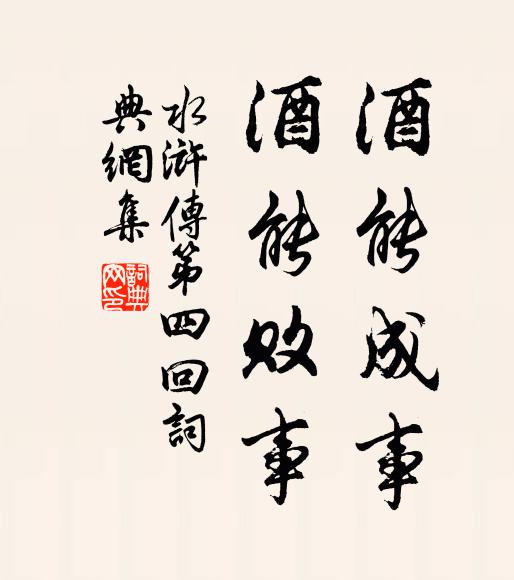 酒能成事
酒能败事
水滸傳第四回詞
典網集
詞典
网印